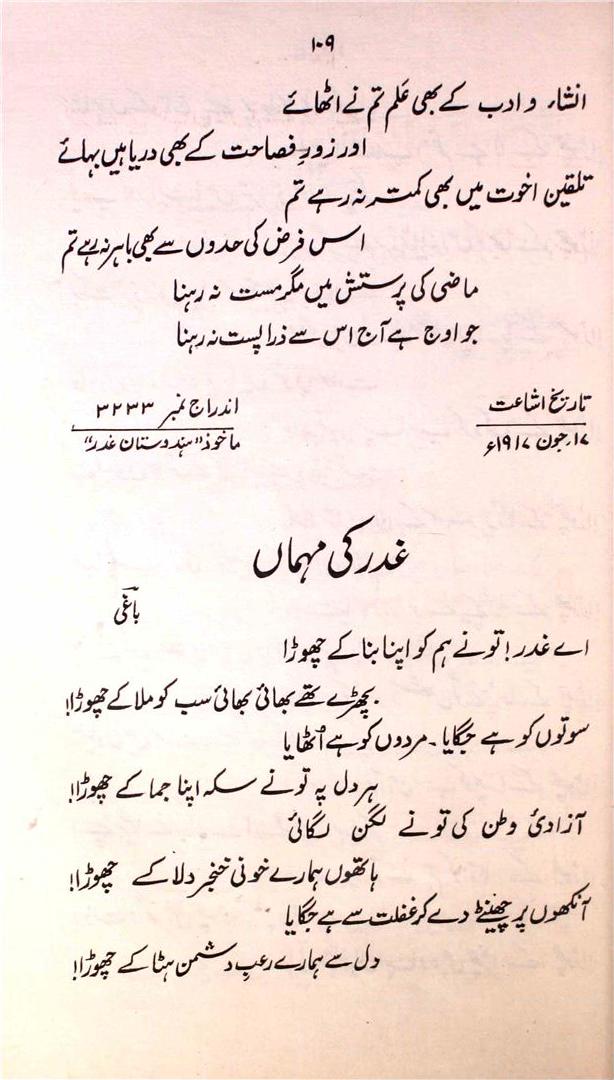 ۱۰۹
انشاء و ادب کے بھی عَلم تم نے اٹھائے
اور زورِ فصاحت کے بھی دریا ہیں بہائے
تلقین اخوت میں بھی کمتر نہ رہے تم
اس فرض کی حدوں سے بھی باہر نہ رہے تم
ماضی کی پرستش میں مگر مست نہ رہنا
جو اوج ہے آج اس سے ذرا پست نہ رہنا
تاریخ اشاعت
۱۷؍جون ۱۹۱۷ء
اندراج نمبر ۳۲۳۳
ماخوذ "ہندوستان غدر"
غدر کی مہماں
باغی
اے غدر! تو نے ہم کو اپنا بنا کے چھوڑا
بچھڑے تھے بھائی بھائی سب کو ملا کے چھوڑا!
سوتوں کو ہے جگایا۔ مردوں کو ہے اُٹھایا
ہر دل پہ تو نے سکہ اپنا جما کے چھوڑا!
آزادیٔ وطن کی تو نے لگن لگائی
ہاتھوں ہمارے خونی خنجر دلا کے چھوڑا!
آنکھوں پر چھینٹے دے کر غفلت سے ہے جگایا
دل سے ہمارے رعبِ دشمن ہٹا کے چھوڑا!